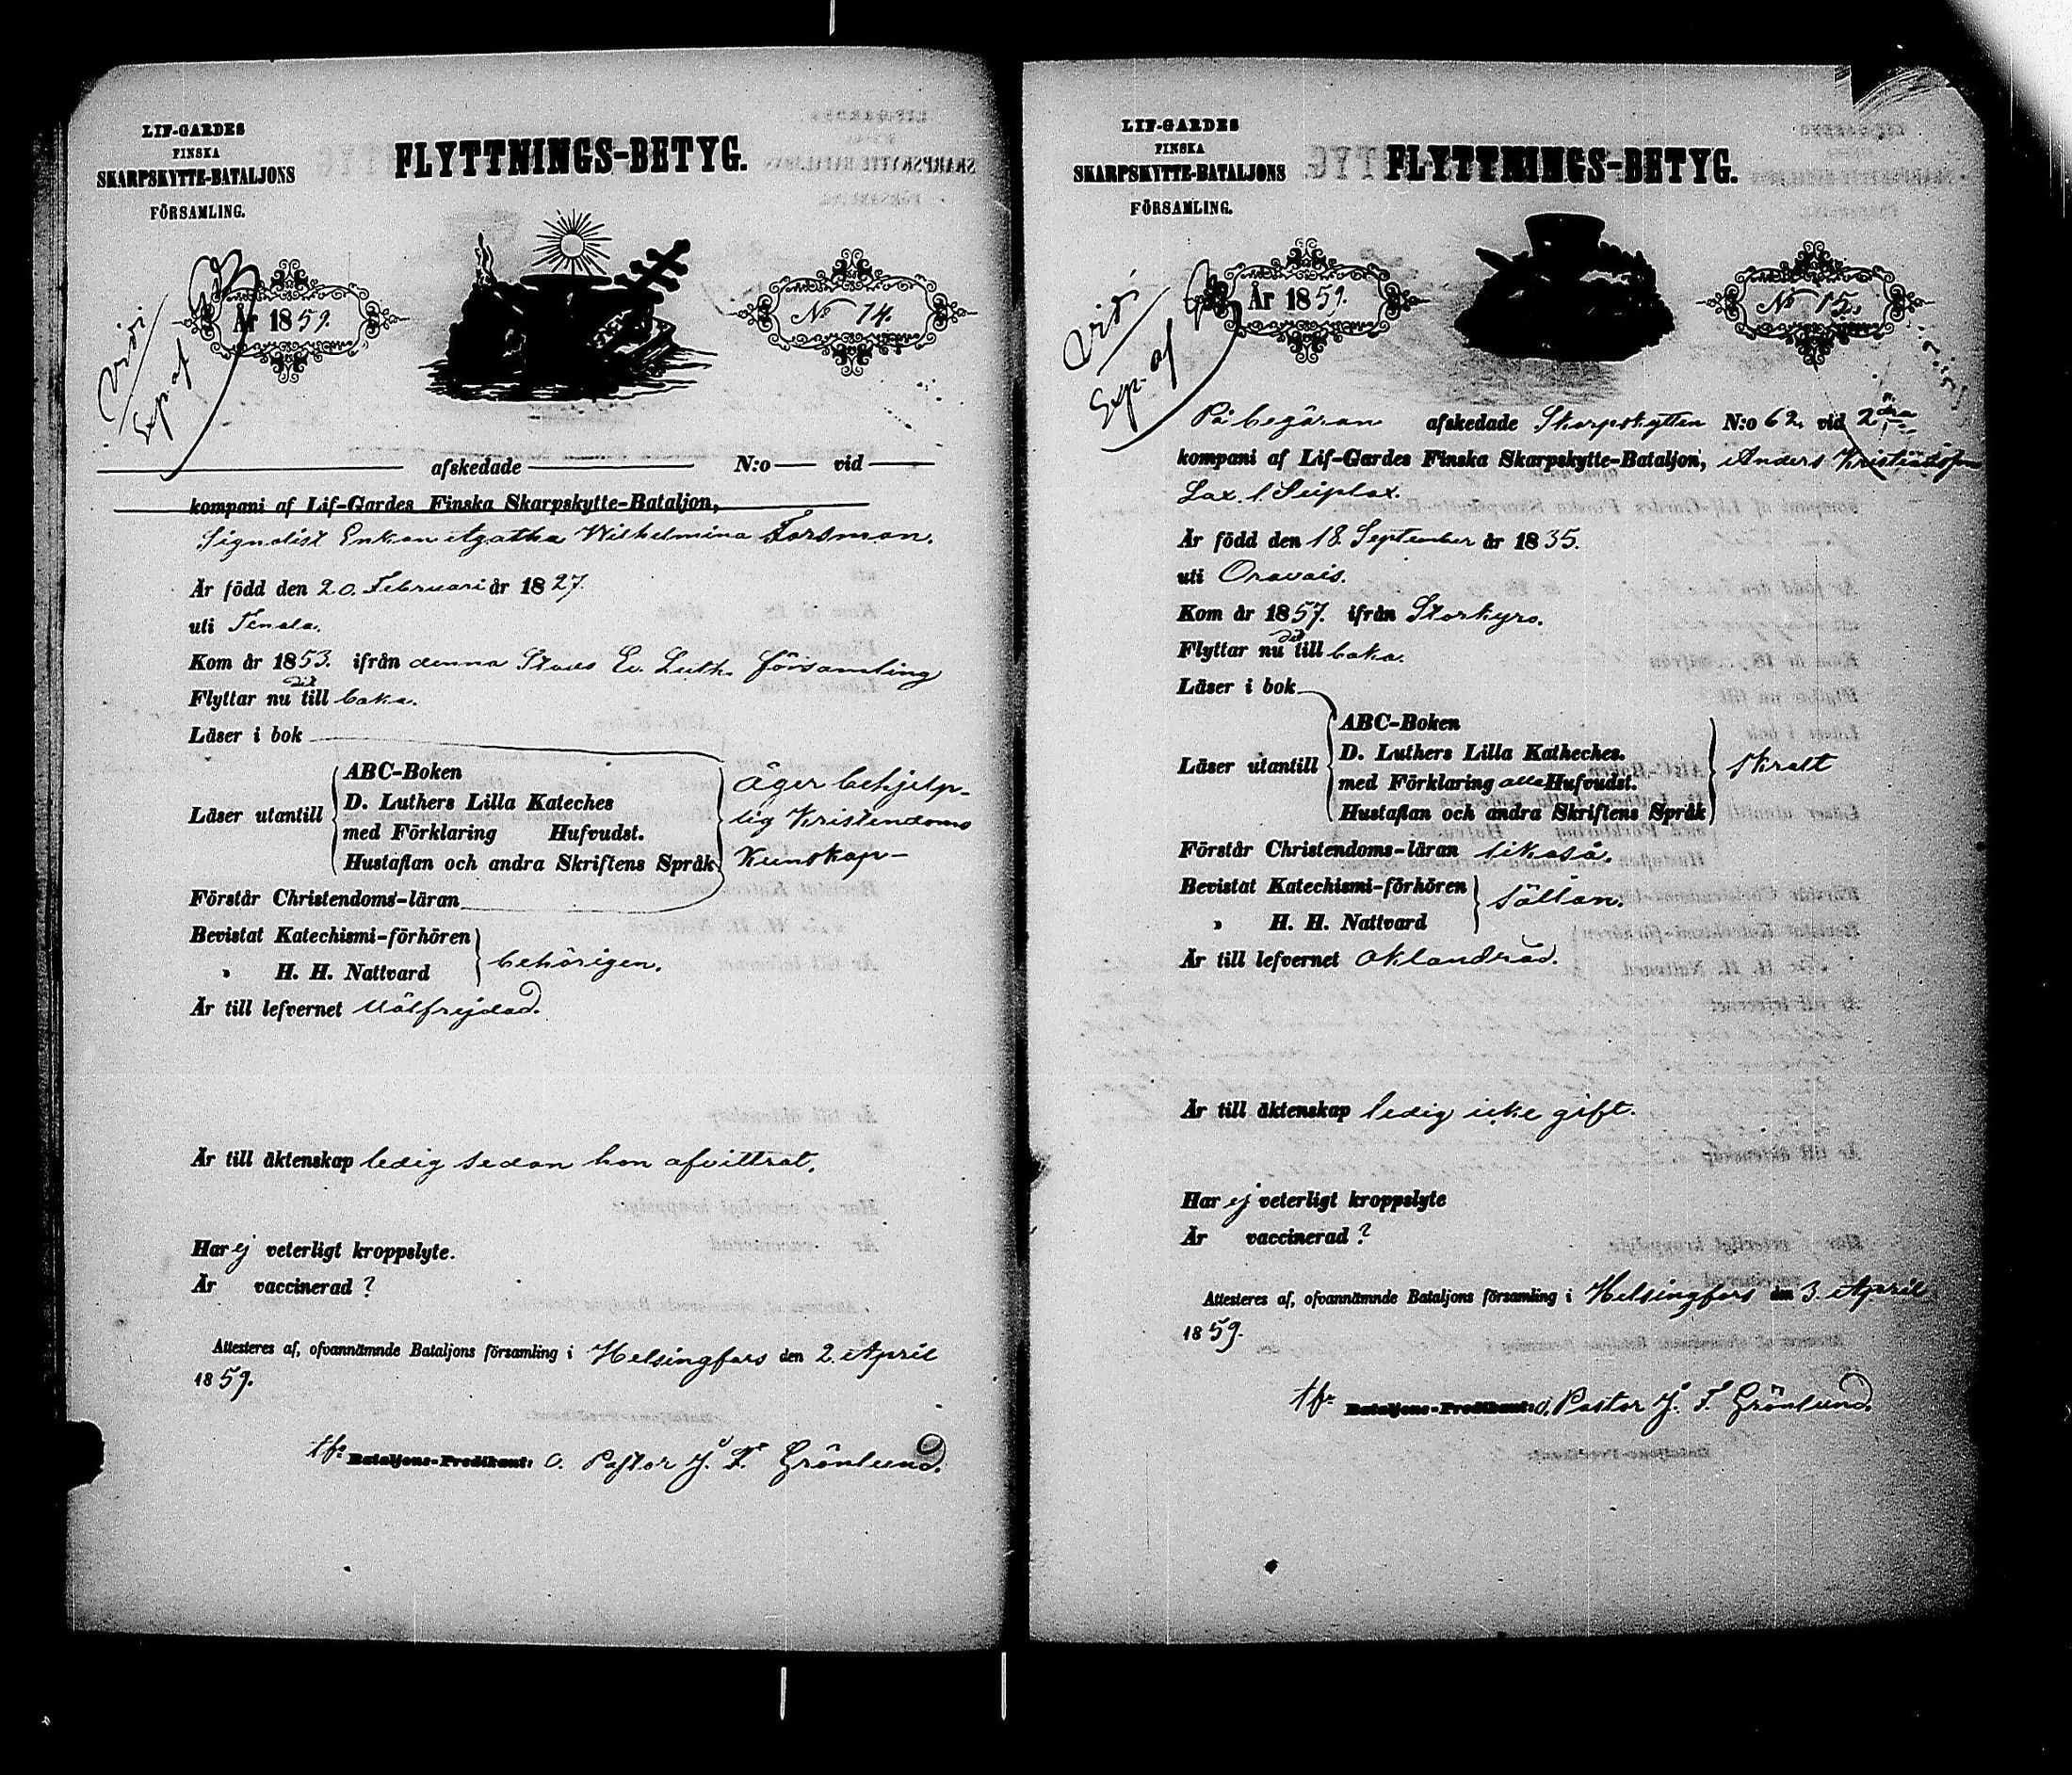 LIF-GARDES
FINSKA
SKARPSKYTTE-BATALJONS
FÖRSAMLING.
FLYTTNINGS-BETYG.
År 1859.
No 14.
Vidi
Exp. af
afskedade N:o vid
kompani af Lif-Gardes Finska Skarpskytte-Bataljon,
Signalist Enkan Agatha Wilhelmina Forsman.
Är född den 20. Februari år 1827.
uti Tenala.
Kom år 1853. ifrån denna Stads Ev. Luth. församling
Flyttar nu dit till baka.
Läser i bok
Läser utantill
ABC-Boken
D. Luthers Lilla Kateches
med Förklaring Hufvudst.
Hustaflan och andra Skriftens Språk
Äger behjelp-
lig Kristendoms
Kunskap-
Förstår Christendoms-läran
Bevistat Katechismi-förhören
" H. H. Nattvard
behörigen.
Är till lefvernet Välfrejdad.
Är till äktenskap ledig sedan hon afvittrat.
Har ej veterligt kroppslyte.
Är vaccinerad ?
Attesteras af, ofvannämnde Bataljons församling i Helsingfors den 2. April
1859.
tfr Bataljons-Predikant: v. Pastor J. F. Grönlund.
LIF-GARDES
FINSKA
SKARPSKYTTE-BATALJONS
FÖRSAMLING.
FLYTTNINGS-BETYG.
År 1859.
No 15.
Vidi
Exp. af
På begäran afskedade Skarpskytten N:o 62. vid 2dra
kompani af Lif-Gardes Finska Skarpskytte-Bataljon, Anders Kristiansson
Lax. l. Seiplax.
Är född den 18. September år 1835.
uti Oravais.
Kom år 1857. ifrån Storkyro.
Flyttar nu dit till baka.
Läser i bok
Läser utantill
ABC-Boken
D. Luthers Lilla Katheches.
med Förklaring alla Hufvudst.
Hustaflan och andra Skriftens Språk
skralt
Förstår Christendoms-läran likaså.
Bevistat Katechismi-förhören
" H. H. Nattvard
sällan.
Är till lefvernet oklandrad.
Är till äktenskap ledig icke gift.
Har ej veterligt kroppslyte
Är vaccinerad ?
Attesteres af, ofvannämnde Bataljons församling i Helsingfors den 3. April
1859.
tfr Bataljons-Predikant: v. Pastor J. F. Grönlund.